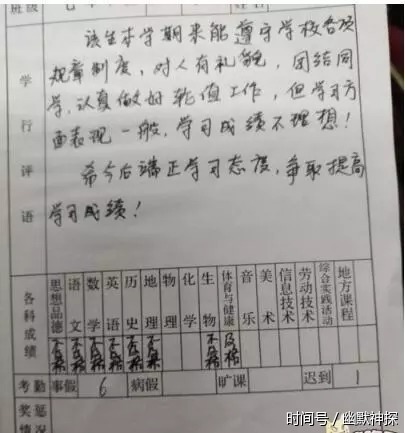 班级
该生本学期来能遵守学校各项
规章制度，对人有礼貌，团结同
学，认真做好轮值工作，但学习方
面表现一般，学习成绩不理想！
希今后端正学习态度，争取提高
学习成绩！
学行评语
各科成绩
思想品德 语文 数学 英语 历史 地理 物理 化学 生物 体育与健康 音乐 美术 信息技术 劳动技术 综合实践活动 地方课程
不及格 不及格 不及格 不及格 不及格 不及格 不及格 及格
考勤 事假 6 病假 旷课 迟到 1
奖惩情况
时间号／幽默神探